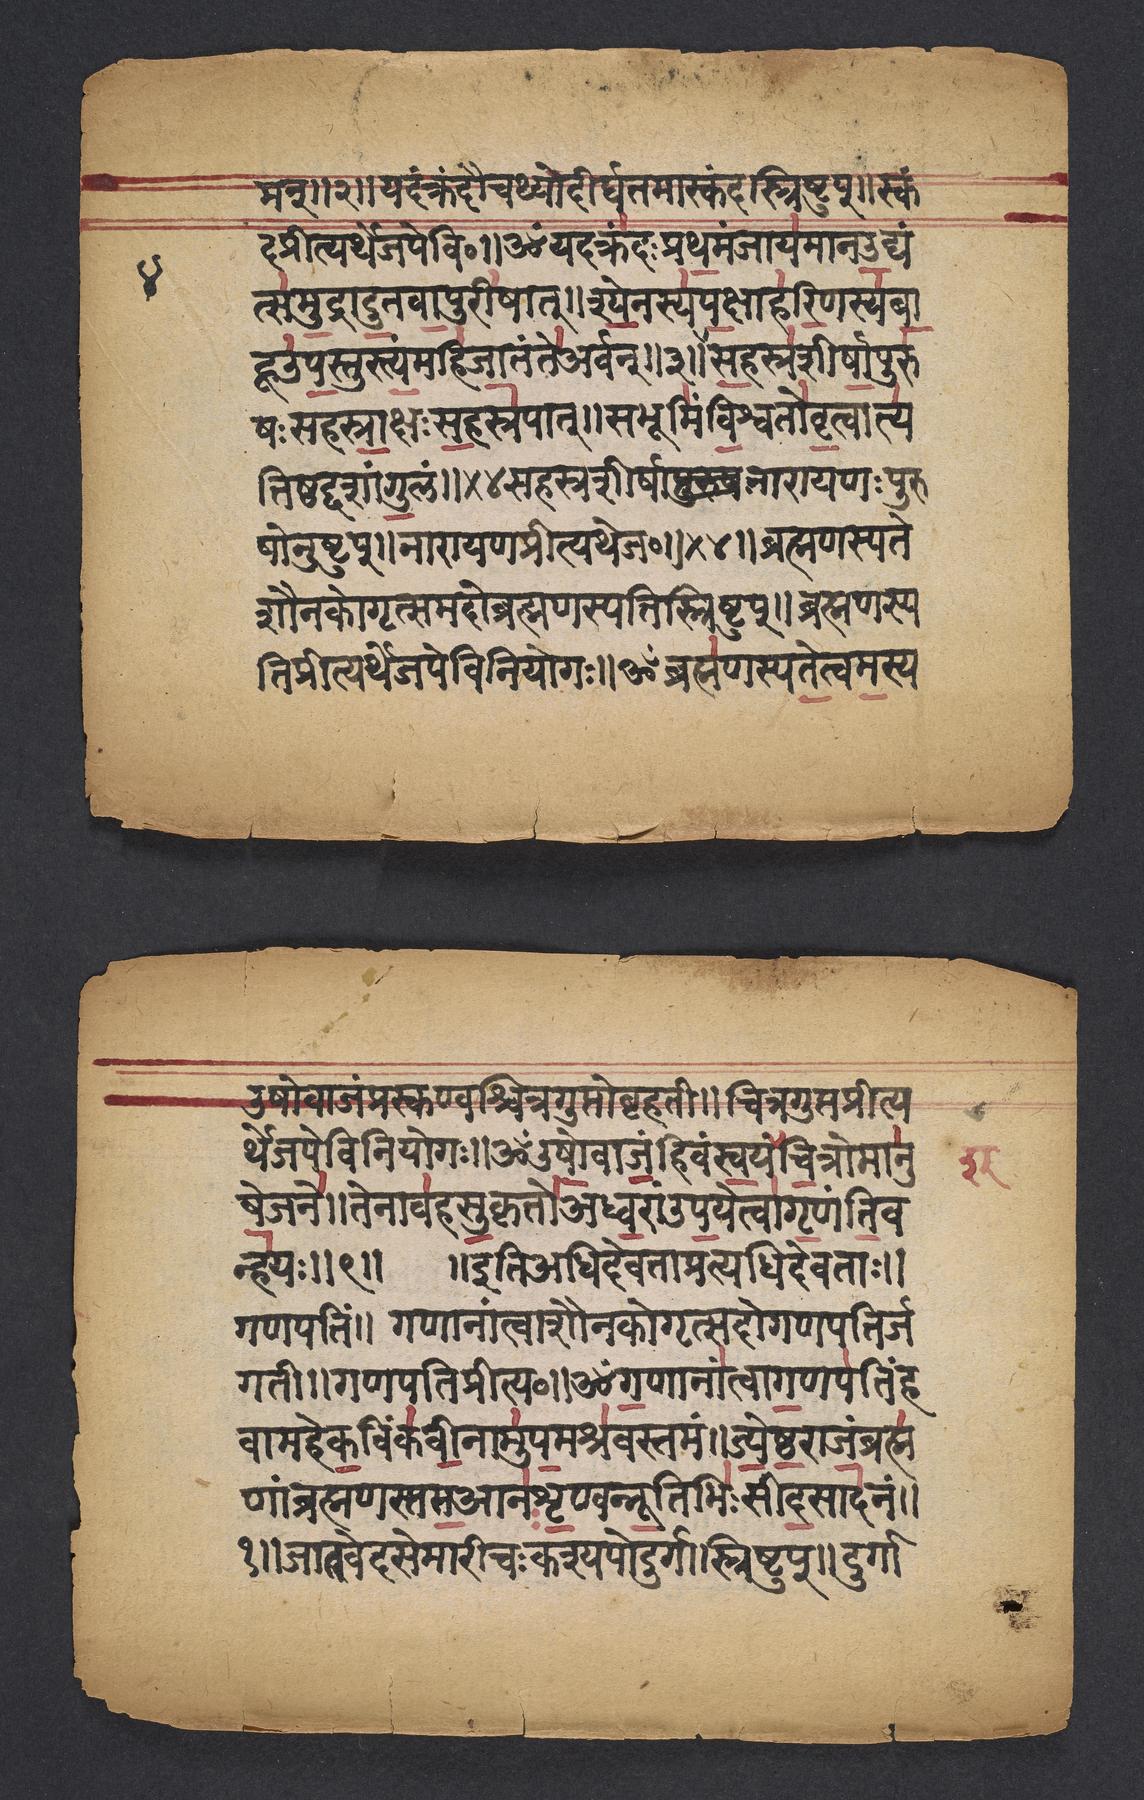 मन्नु॥२॥यदक्रंदौचथ्योदीर्घतमास्कंदस्त्रिष्टुप्॥स्कं
दप्रीत्यर्थेजपेवि०॥ॐयदक्रंदःप्रथमंजायमानउद्यं
४
त्समुद्रादुतवापुरीषात्॥श्येनस्यपक्षाहरिणस्यबा
हूउपस्तुत्यंमहिजातंतेअर्वन्॥३॥सहस्त्रशीर्षापुरु
षःसहस्त्राक्षःसहस्त्रपात्॥सभूमिंविश्वतोवृत्वात्य
तिष्ठद्दशांगुलं॥४४सहस्त्रशीर्षानारायणःपुरु
षोनुष्टुप्॥नारायणप्रीत्यर्थेज०॥४४॥ब्रह्मणस्पते
शौनकोगृत्समदोब्रह्मणस्पतिस्त्रिष्टुप्॥ब्रह्मणस्प
तिप्रीत्यर्थेजपेविनियोगः॥ॐब्रह्मणस्पतेत्वमस्य
उषोवाजंप्रस्कण्वश्चित्रगुप्तोबृहती॥चित्रगुप्तप्रीत्य
र्थेजपेविनियोगः॥ॐउषोवाजंहिवंस्वयंचित्रोमानु
षेजने॥तेनावहसुकृतोअध्वरांउपयेत्वागृणंतिव
न्हयः॥९॥ ॥इतिअधिदेवताप्रत्यधिदेवताः॥
गणपतिं॥ गणानांत्वाशौनकोगृत्सदोगणपतिर्ज
गती॥गणपतिप्रीत्य०॥ॐगणानांत्वागणपतिंह
वामहेकविंकवीनामुपमश्रवस्तमं॥ज्येष्ठराजंब्रह्म
णांब्रह्मणस्पतआनशृण्वन्नूतिभिःसीदसादनं॥
१॥जातवेदसेमारीचःकश्यपोदुर्गास्त्रिष्टुप्॥दुर्गा